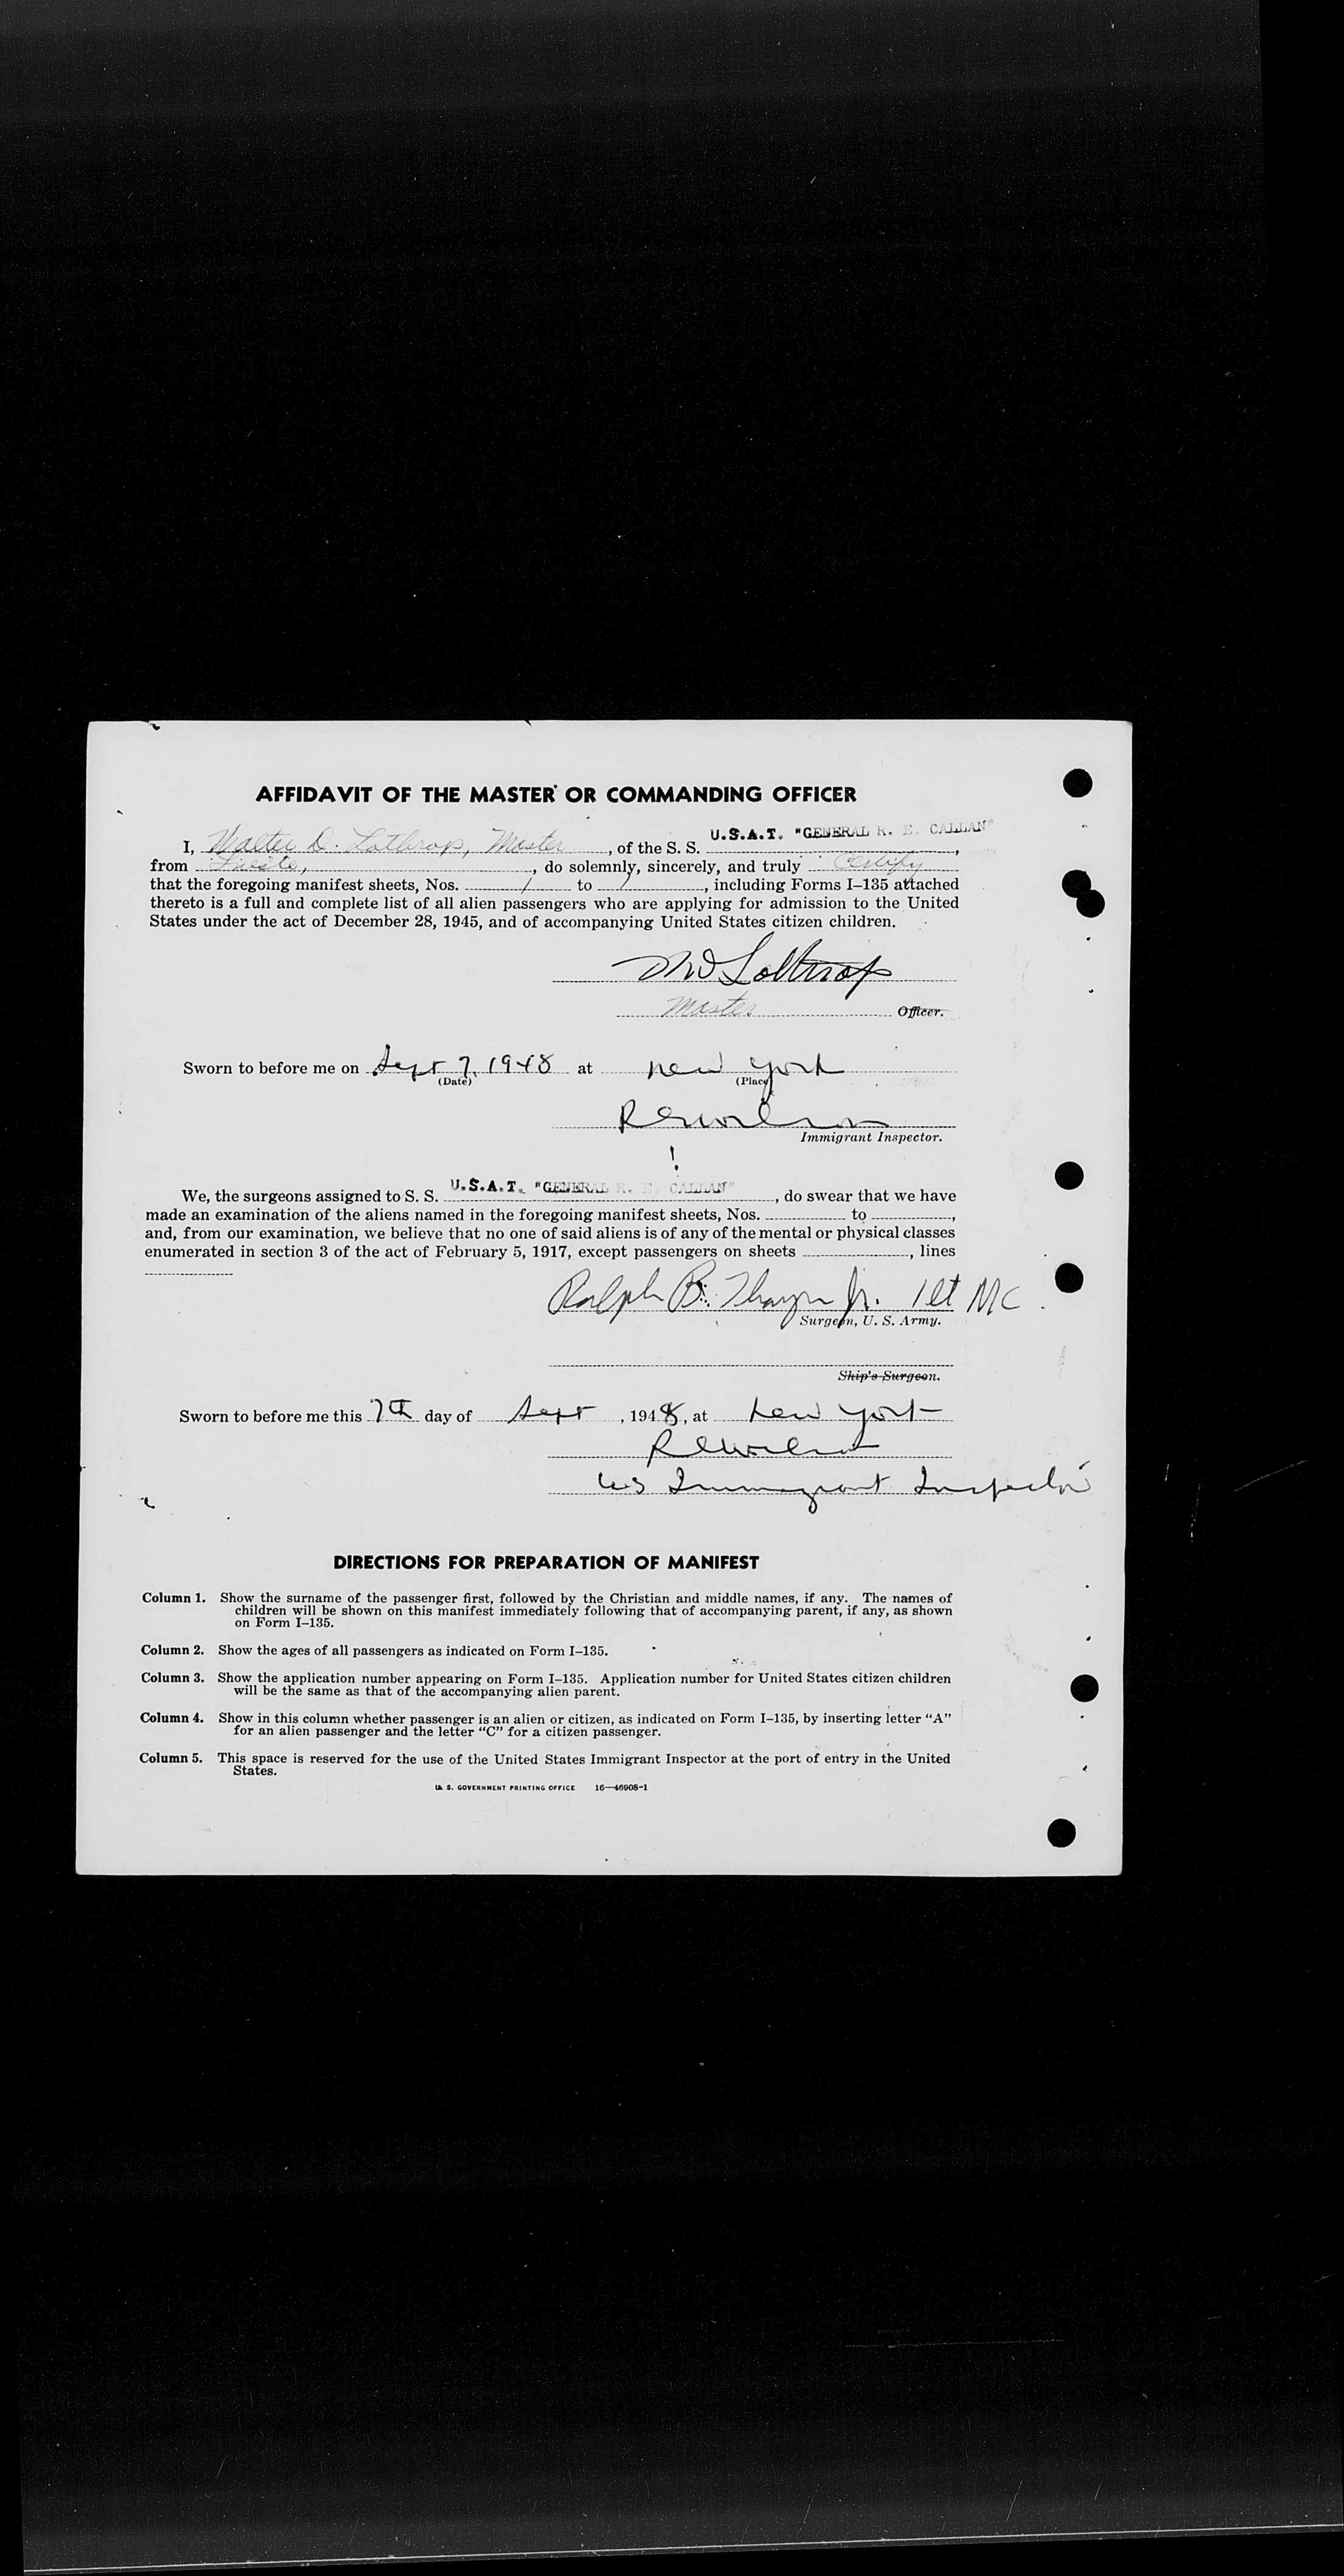 AFFIDAVIT OF THE MASTER OR COMMANDING OFFICER
I, Walter D. Lothrop, Master, of the S. S. U.S.A.T. "GENERAL R. E. CALLAN",
from Trieste, do solemnly, sincerely, and truly Certify
that the foregoing manifest sheets, Nos. 1 to , including Forms I-135 attached
thereto is a full and complete list of all alien passengers who are applying for admission to the United
States under the act of December 28, 1945, and of accompanying United States citizen children.
Lothrop
Master Officer.
Sworn to before me on Sept 7, 1948 at New York
(Date) (Place)
Immigrant Inspector.
We, the surgeons assigned to S. S. U.S.A.T. "GENERAL R. E. CALLAN", do swear that we have
made an examination of the aliens named in the foregoing manifest sheets, Nos. to ,
and, from our examination, we believe that no one of said aliens is of any of the mental or physical classes
enumerated in section 3 of the act of February 5, 1917, except passengers on sheets , lines
Ralph B. Jr. 1 Lt MC
Surgeon, U. S. Army.
Ship's Surgeon.
Sworn to before me this 7th day of Sept, 1948, at New York
US Immigrant Inspector
DIRECTIONS FOR PREPARATION OF MANIFEST
Column 1. Show the surname of the passenger first, followed by the Christian and middle names, if any. The names of
children will be shown on this manifest immediately following that of accompanying parent, if any, as shown
on Form I-135.
Column 2. Show the ages of all passengers as indicated on Form I-135.
Column 3. Show the application number appearing on Form I-135. Application number for United States citizen children
will be the same as that of the accompanying alien parent.
Column 4. Show in this column whether passenger is an alien or citizen, as indicated on Form I-135, by inserting letter "A"
for an alien passenger and the letter "C" for a citizen passenger.
Column 5. This space is reserved for the use of the United States Immigrant Inspector at the port of entry in the United
States.
U. S. GOVERNMENT PRINTING OFFICE 16-46908-1